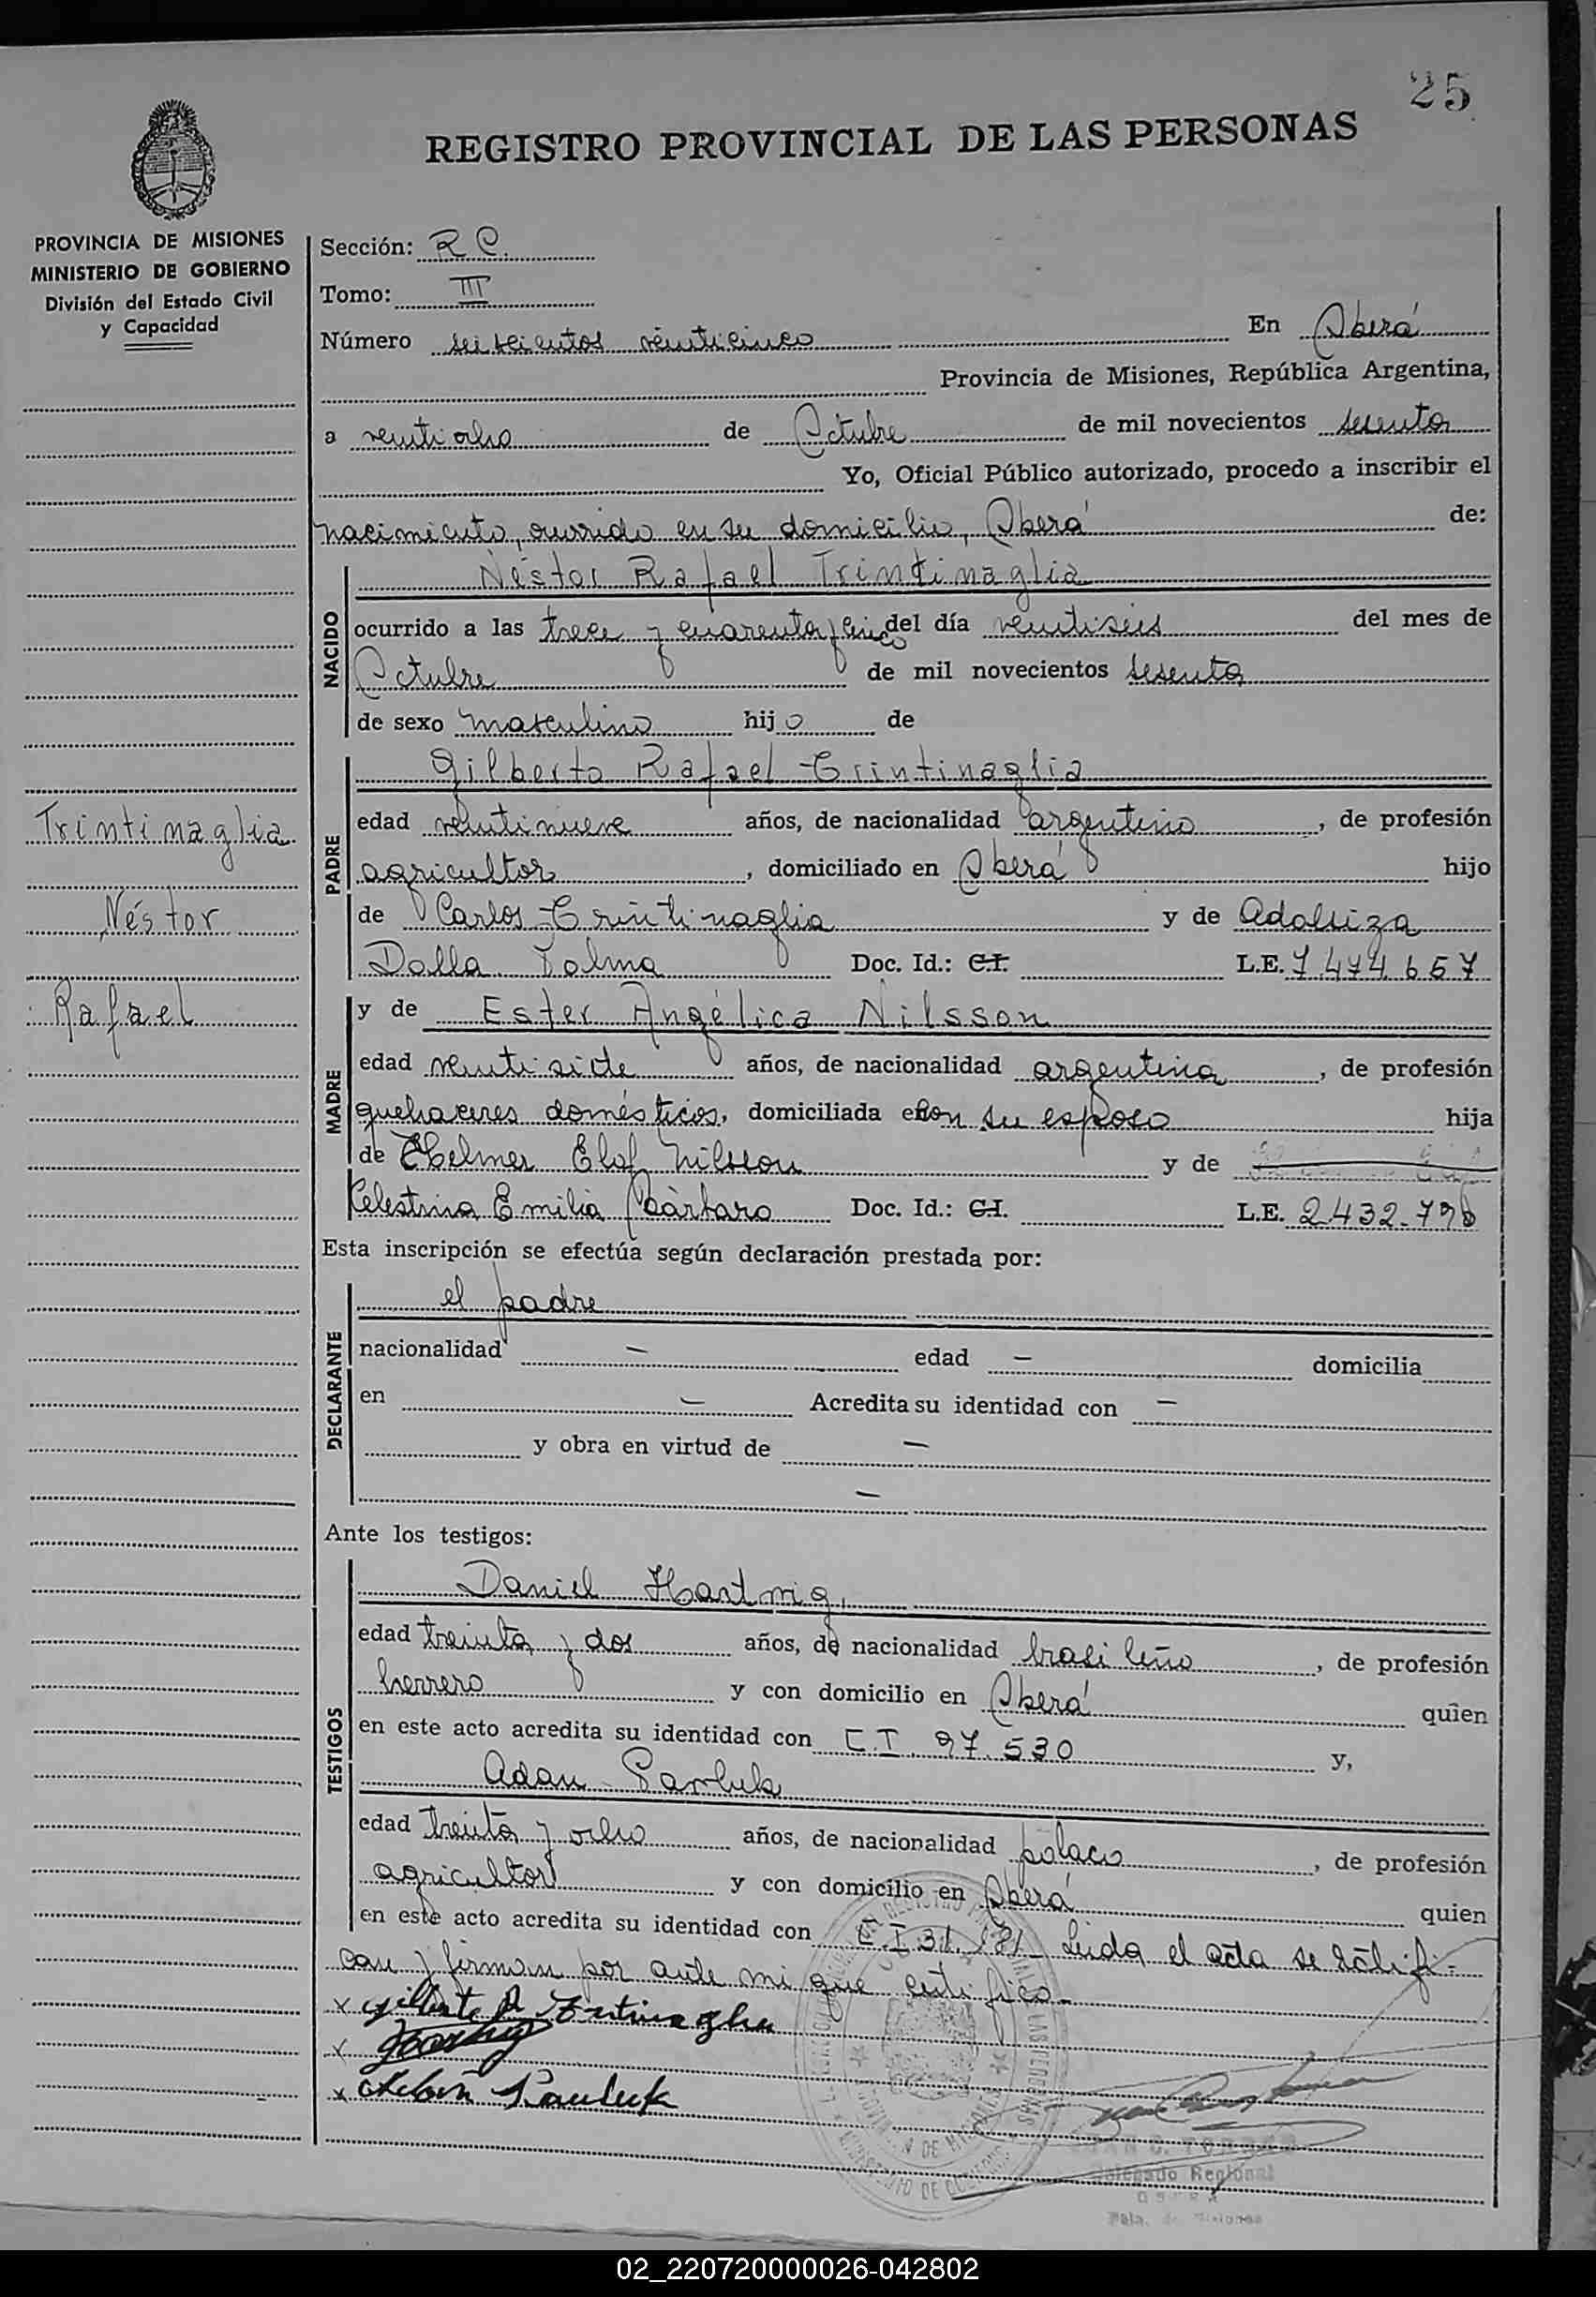 25
REGISTRO PROVINCIAL DE LAS PERSONAS
PROVINCIA DE MISIONES
MINISTERIO DE GOBIERNO
División del Estado Civil
y Capacidad
Sección: R C.
Tomo: III
Número seiscientos veinticinco En Oberá
Provincia de Misiones, República Argentina,
a veintiocho de Octubre de mil novecientos sesenta
Yo, Oficial Público autorizado, procedo a inscribir el
nacimiento, ocurrido en su domicilio, Oberá de:
NACIDO
Néstor Rafael Trintinaglia
ocurrido a las trece y cuarenta y cinco del día veintiseis del mes de
Octubre de mil novecientos sesenta
de sexo masculino hijo de
PADRE
Gilberto Rafael Trintinaglia
edad veintinueve años, de nacionalidad argentino, de profesión
agricultor, domiciliado en Oberá hijo
de Carlos Trintinaglia y de
Dalla Doc. Id.: C.I. L.E. 7.474.657
Trintinaglia
Néstor
Rafael
MADRE
y de Ester Angélica Nilsson
edad veintisiete años, de nacionalidad argentina, de profesión
quehaceres domésticos, domiciliada en con su esposo hija
de Helmer Elof Nilsson y de
Celestina Emilia Bárbaro Doc. Id.: C.I. L.E. 2.432.796
Esta inscripción se efectúa según declaración prestada por:
DECLARANTE
el padre
nacionalidad — edad — domicilia
en — Acredita su identidad con —
y obra en virtud de —
—
Ante los testigos:
TESTIGOS
Daniel Hartwig,
edad treinta y dos años, de nacionalidad brasileño, de profesión
herrero y con domicilio en Oberá quien
en este acto acredita su identidad con C.I. 97.530 y,
Adan Pauluk
edad treinta y ocho años, de nacionalidad polaco, de profesión
agricultor y con domicilio en Oberá quien
en este acto acredita su identidad con C.I 31.181 Leida el acta se ratifi-
can y firman por ante mi que certifico.-
x Gilberto R Trintinaglia
x
x Pauluk
Delegado Regional
OBERA
Pcia. de Misiones
02_220720000026-042802